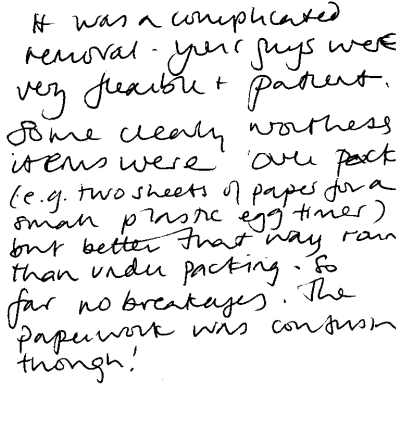 It was a complicated
removal - your guys were
very flexible + patient.
Some clearly worthless
items were 'over pack
(e.g. two sheets of paper for a
small plastic egg timer)
but better that way
than under packing. So
far no breakages. The
paperwork was confusin
though!